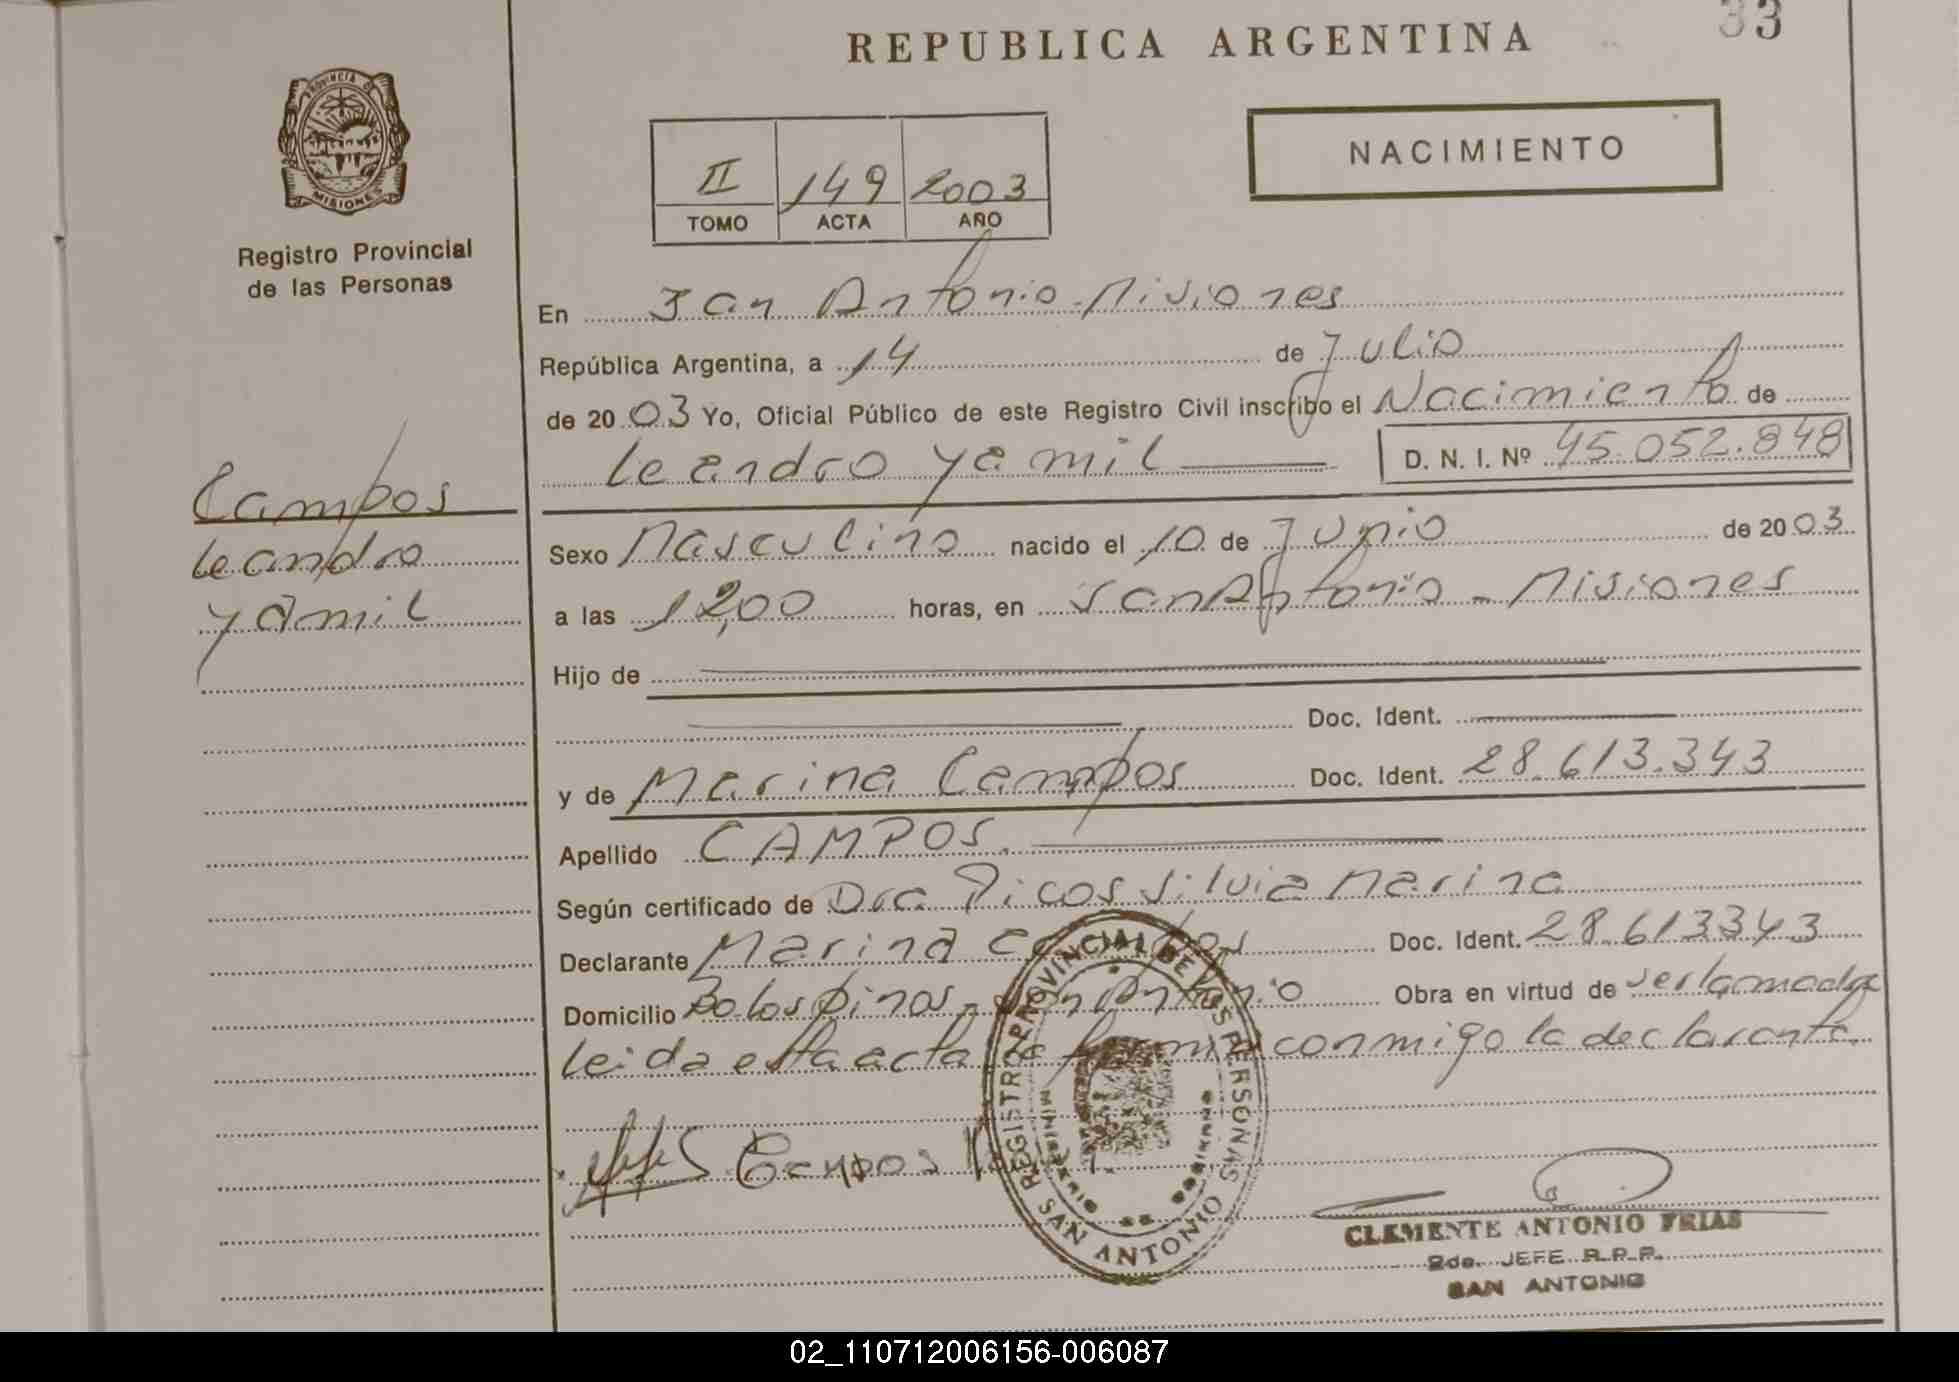 REPUBLICA ARGENTINA
33
PROVINCIA DE
MISIONES
Registro Provincial
de las Personas
II 149 2003
TOMO ACTA AÑO
NACIMIENTO
En San Antonio - Misiones
República Argentina, a 14 de Julio
de 2003 Yo, Oficial Público de este Registro Civil inscribo el Nacimiento de
Leandro Yamil D. N. I. Nº 45.052.848
Campos
Leandro
Yamil
Sexo Masculino nacido el 10 de Junio de 2003
a las 12,00 horas, en San Antonio - Misiones
Hijo de
Doc. Ident.
y de Marina Campos Doc. Ident. 28.613.343
Apellido CAMPOS.
Según certificado de Dra Picos Silvia Marina
Declarante Marina Campos Doc. Ident. 28.613343
Domicilio 30 los pinos - San Antonio Obra en virtud de ser la madre
leida esta acta firma conmigo la declarante.
Campos
REGISTRO PROVINCIAL DE LAS PERSONAS
SAN ANTONIO
CLEMENTE ANTONIO FRIAS
2do. JEFE R.P.P.
SAN ANTONIO
02_110712006156-006087